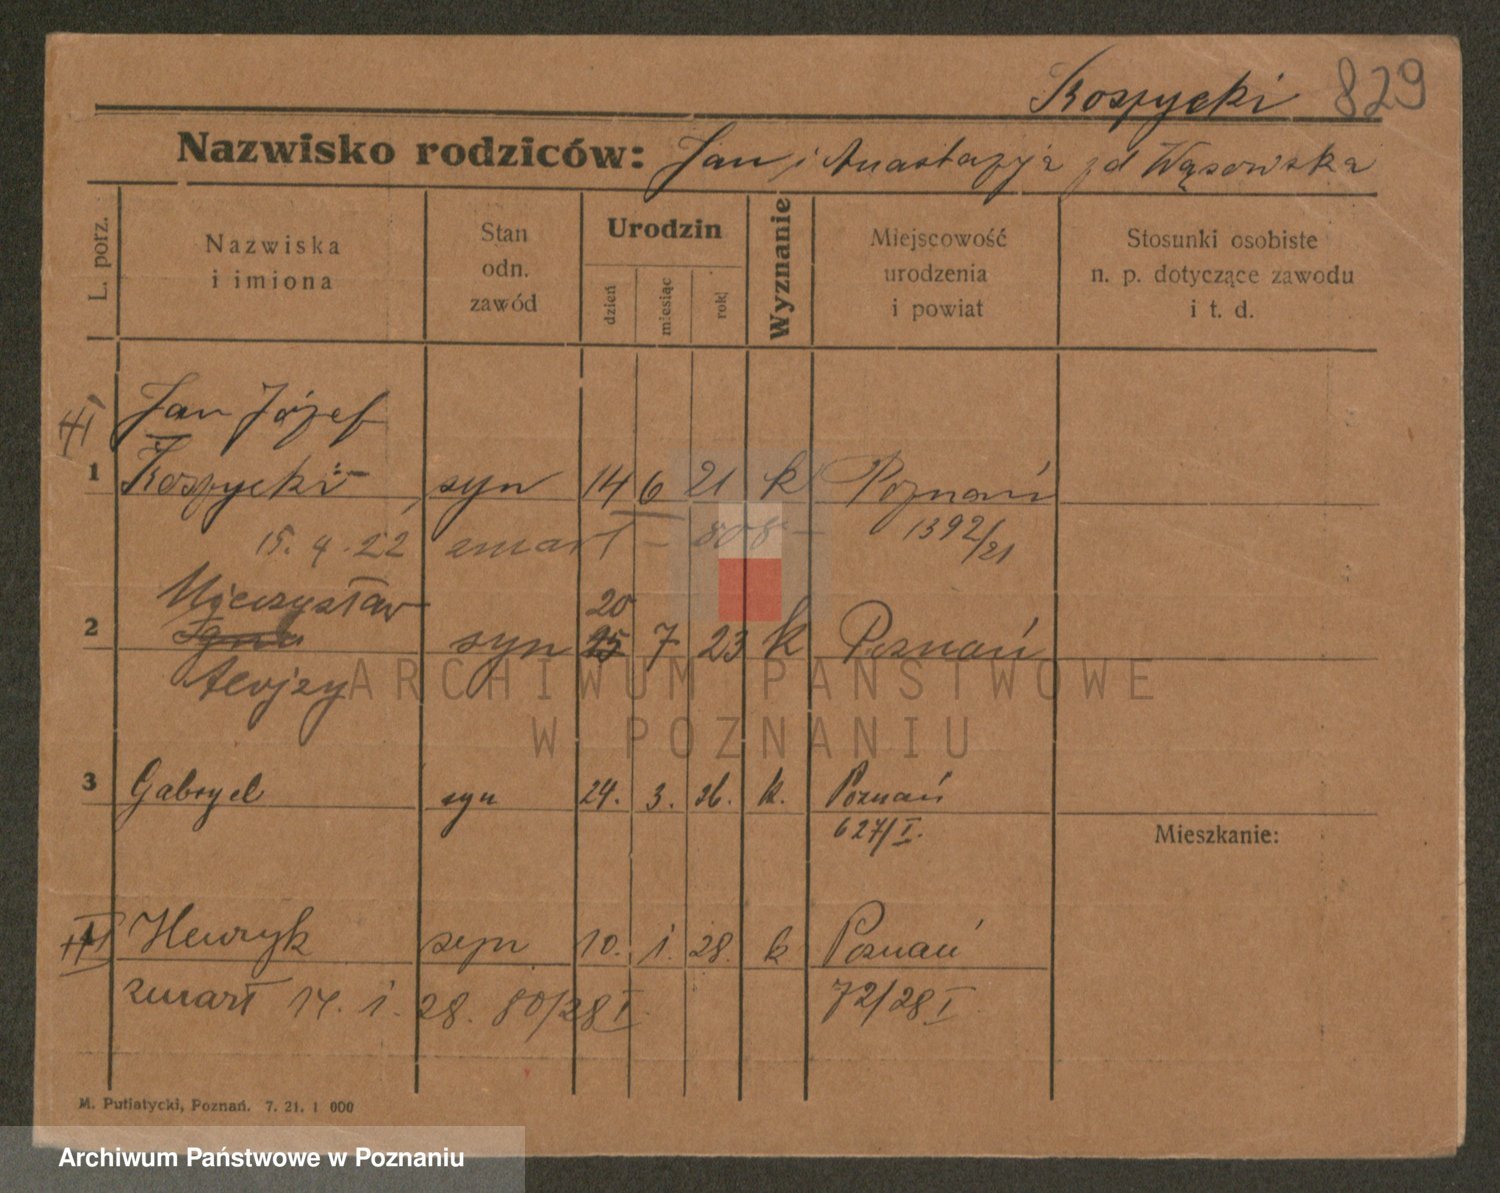 Kospycki 829
Nazwisko rodziców: Jan i Anastazja zd Wąsowska
L. porz.
Nazwiska
i imiona
Stan
odn.
zawód
Urodzin
dzień
miesiąc
rok
Wyznanie
Miejscowość
urodzenia
i powiat
Stosunki osobiste
n. p. dotyczące zawodu
i t. d.
Jan Józef
1 Kospycki syn 14 6 21 k Poznań
1392/21
15. 4. 22 zmarł – 808 –
Mieczysław 20
2 syn 25 7 23 k Poznań
Alojzy
3 Gabryel syn 24. 3. 26. k. Poznań
627/I.
Mieszkanie:
4 Henryk syn 10. i. 28. k Poznań
zmarł 14. i. 28. 80/28 I.
72/28 I
M. Putiatycki, Poznań. 7. 21. 1 000
ARCHIWUM PAŃSTWOWE
W POZNANIU
Archiwum Państwowe w Poznaniu